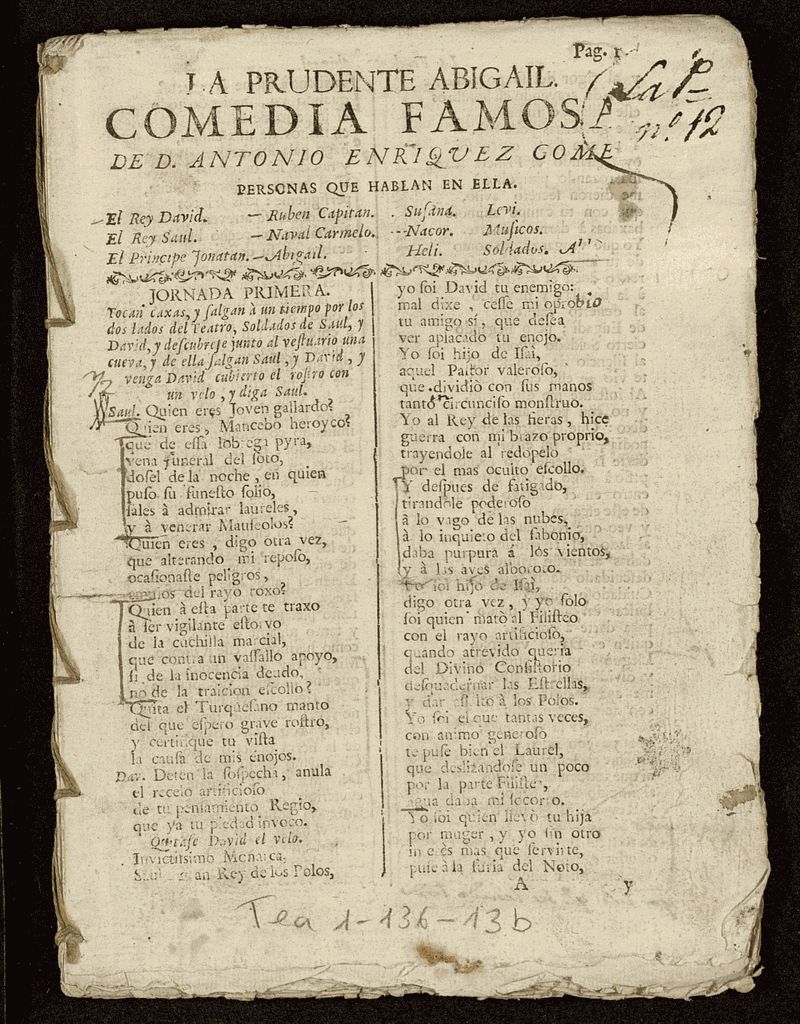 Pag. 1
LA PRUDENTE ABIGAIL.
COMEDIA FAMOSA
La P.
nº. 12
DE D. ANTONIO ENRIQVEZ GOME
PERSONAS QUE HABLAN EN ELLA.
El Rey David. — Ruben Capitan. Susana. Levi.
El Rey Saul. — Naval Carmelo. Nacor. Musicos.
El Principe Jonatan. — Abigail. Heli. Soldados.
JORNADA PRIMERA.
Tocan caxas, y salgan à un tiempo por los
dos lados del Teatro, Soldados de Saul, y
David, y descubrese junto al vestuario una
cueva, y de ella salgan Saul, y David, y
venga David cubierto el rostro con
un velo, y diga Saul.
Saul. Quien eres Joven gallardo?
Quien eres, Mancebo heroyco?
que de essa lobrega pyra,
vena funeral del soto,
dosel de la noche, en quien
puso su funesto solio,
sales à admirar laureles,
y à venerar Mauseolos?
Quien eres, digo otra vez,
que alterando mi reposo,
ocasionaste peligros,
del rayo roxo?
Quien à esta parte te traxo
à ser vigilante estorvo
de la cuchilla marcial,
que contra un vassallo apoyo,
si de la inocencia deudo,
no de la traicion escollo?
Quita el Turquesano manto
del que espero grave rostro,
y certifique tu vista
la causa de mis enojos.
Dav. Deten la sospecha, anula
el recelo artificioso
de tu pensamiento Regio,
que ya tu piedad invoco.
Quitase David el velo.
Invictissimo Monarca,
Saul, gran Rey de los Polos,
yo soi David tu enemigo:
mal dixe, cesse mi oprobio
tu amigo sí, que desea
ver aplacado tu enojo.
Yo soi hijo de Isai,
aquel Pastor valeroso,
que dividiò con sus manos
tanto circunciso monstruo.
Yo al Rey de las fieras, hice
guerra con mi brazo proprio,
trayendole al redopelo
por el mas oculto escollo.
Y despues de fatigado,
tirandole poderoso
à lo vago de las nubes,
à lo inquieto del fabonio,
daba purpura á los vientos,
y à las aves alboroto.
Yo soi hijo de Isai,
digo otra vez, y yo solo
soi quien matò al Filisteo
con el rayo artificioso,
quando atrevido queria
del Divino Consistorio
desquadernar las Estrellas,
y dar assalto à los Polos.
Yo soi el que tantas veces,
con animo generoso
te puse bien el Laurel,
que deslizandose un poco
por la parte Filistea,
agua daba mi socorro.
Yo soi quien llevò tu hija
por muger, y yo sin otro
interès mas que servirte,
puse à la furia del Noto,
A y
Tea 1-136-13b